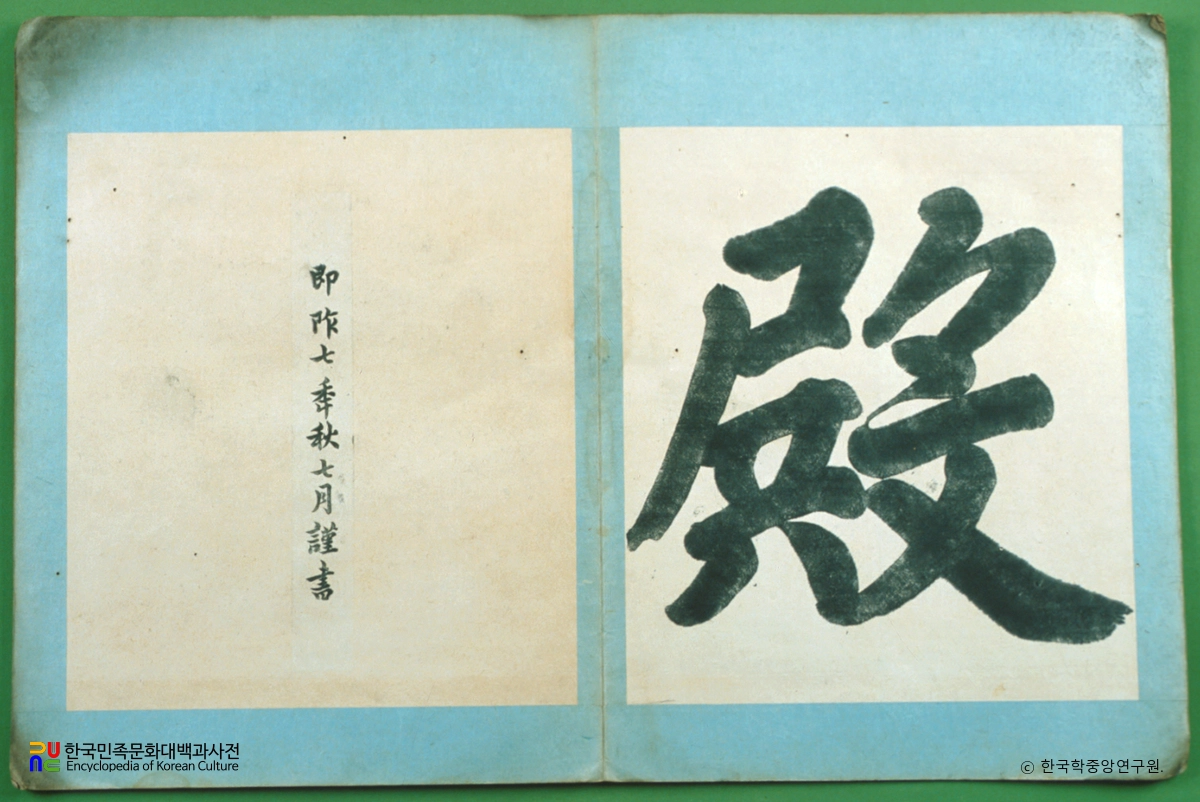 殿
即阼七季秋七月謹書
한국민족문화대백과사전
Encyclopedia of Korean Culture
ⓒ 한국학중앙연구원.